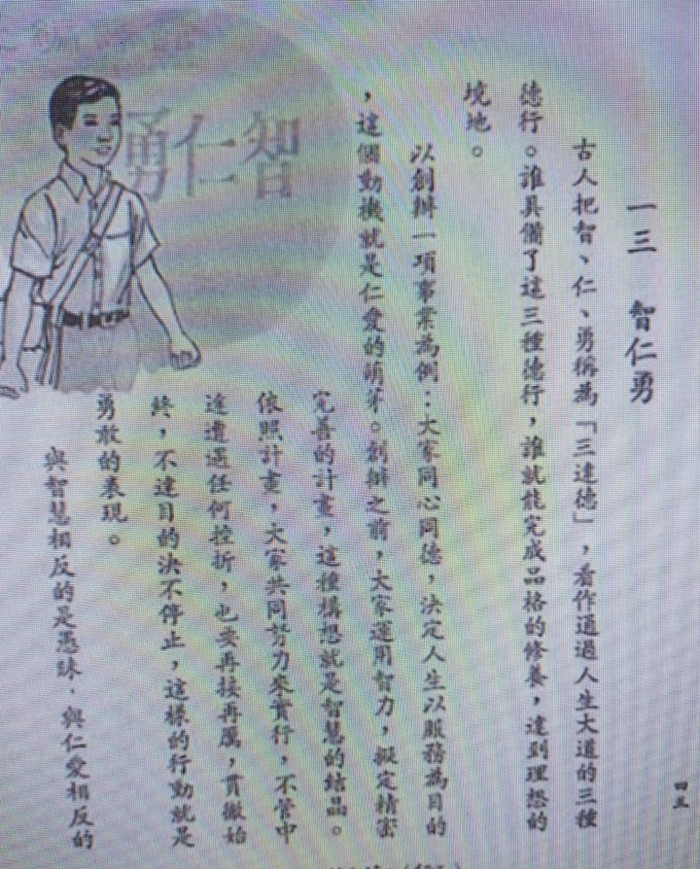 一三　智仁勇
古人把智、仁、勇稱為「三達德」，看作通過人生大道的三種
德行。誰具備了這三種德行，誰就能完成品格的修養，達到理想的
境地。
以創辦一項事業為例：大家同心同德，決定人生以服務為目的
，這個動機就是仁愛的萌芽。創辦之前，大家運用智力，擬定精密
完善的計畫，這種構想就是智慧的結晶。
依照計畫，大家共同努力來實行，不管中
途遭遇任何挫折，也要再接再厲，貫徹始
終，不達目的決不停止，這樣的行動就是
勇敢的表現。
與智慧相反的是愚昧，與仁愛相反的
智仁勇
四五